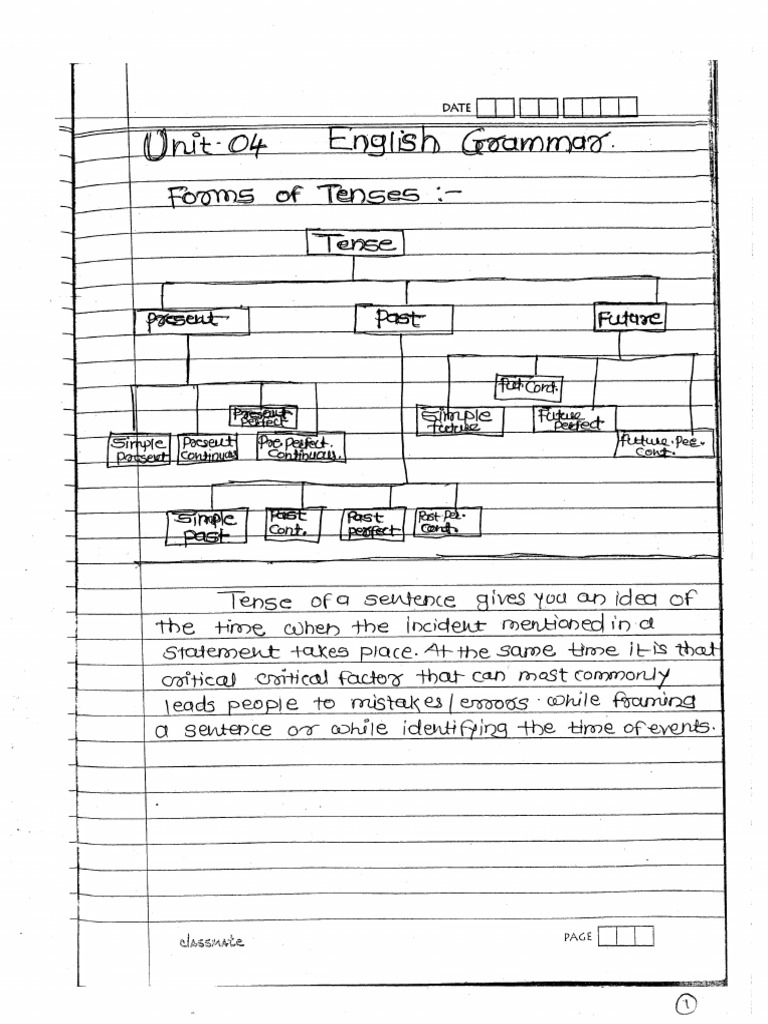 DATE
Unit-04 English Grammar.
Forms of Tenses :-
Tense
Present Past Future
Fut. Cont.
Present Perfect
Simple Future
Future Perfect
Simple Present
Present Continuous
Pre Perfect. Continuous.
Future. Per. Cont.
Simple Past
Past Cont.
Past Perfect
Past Per. Cont.
Tense of a sentence gives you an idea of
the time when the incident mentioned in a
statement takes place. At the same time it is that
critical critical factor that can most commonly
leads people to mistakes/errors. while framing
a sentence or while identifying the time of events.
classmate
PAGE
1